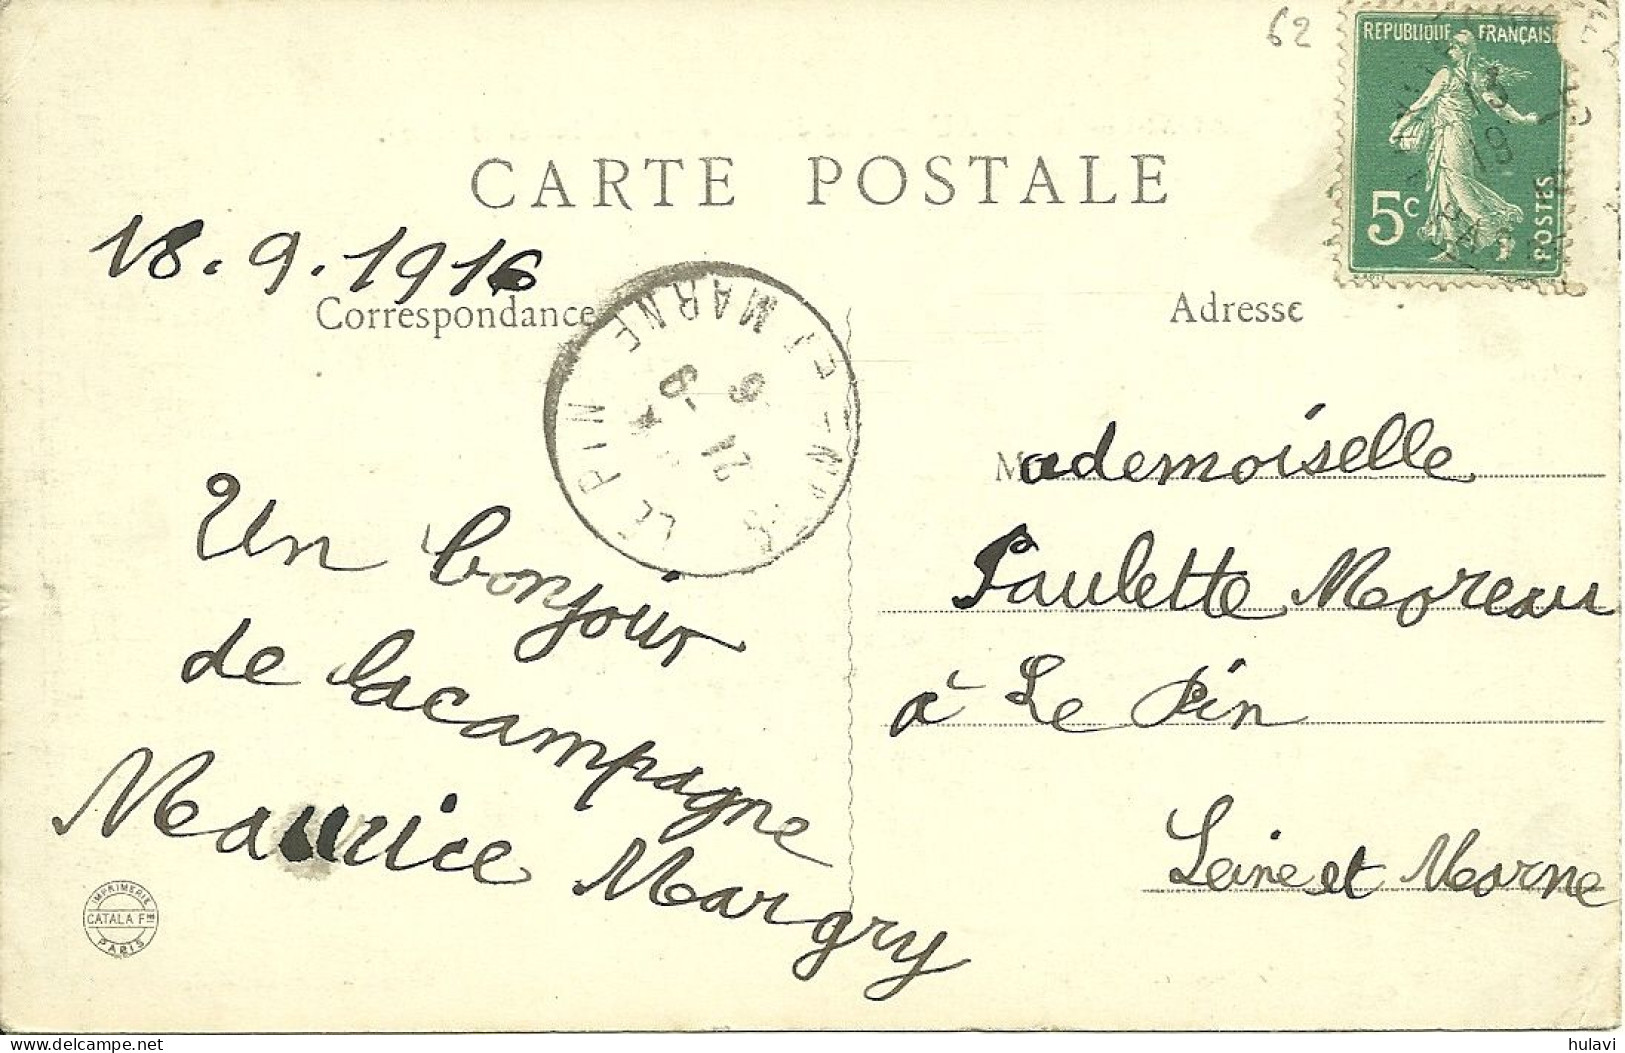 62
REPUBLIQUE FRANÇAISE
13
19
5c
POSTES
CARTE POSTALE
18.9.1916
Correspondance
Adresse
LE PIN
MARNE
21 -9
Mademoiselle
Paulette Moreau
à Le Pin
Seine et Marne
Un bonjour
de lacampagne
Maurice Margry
IMPRIMERIE
CATALA Fres
PARIS
delcampe.net
hulavi